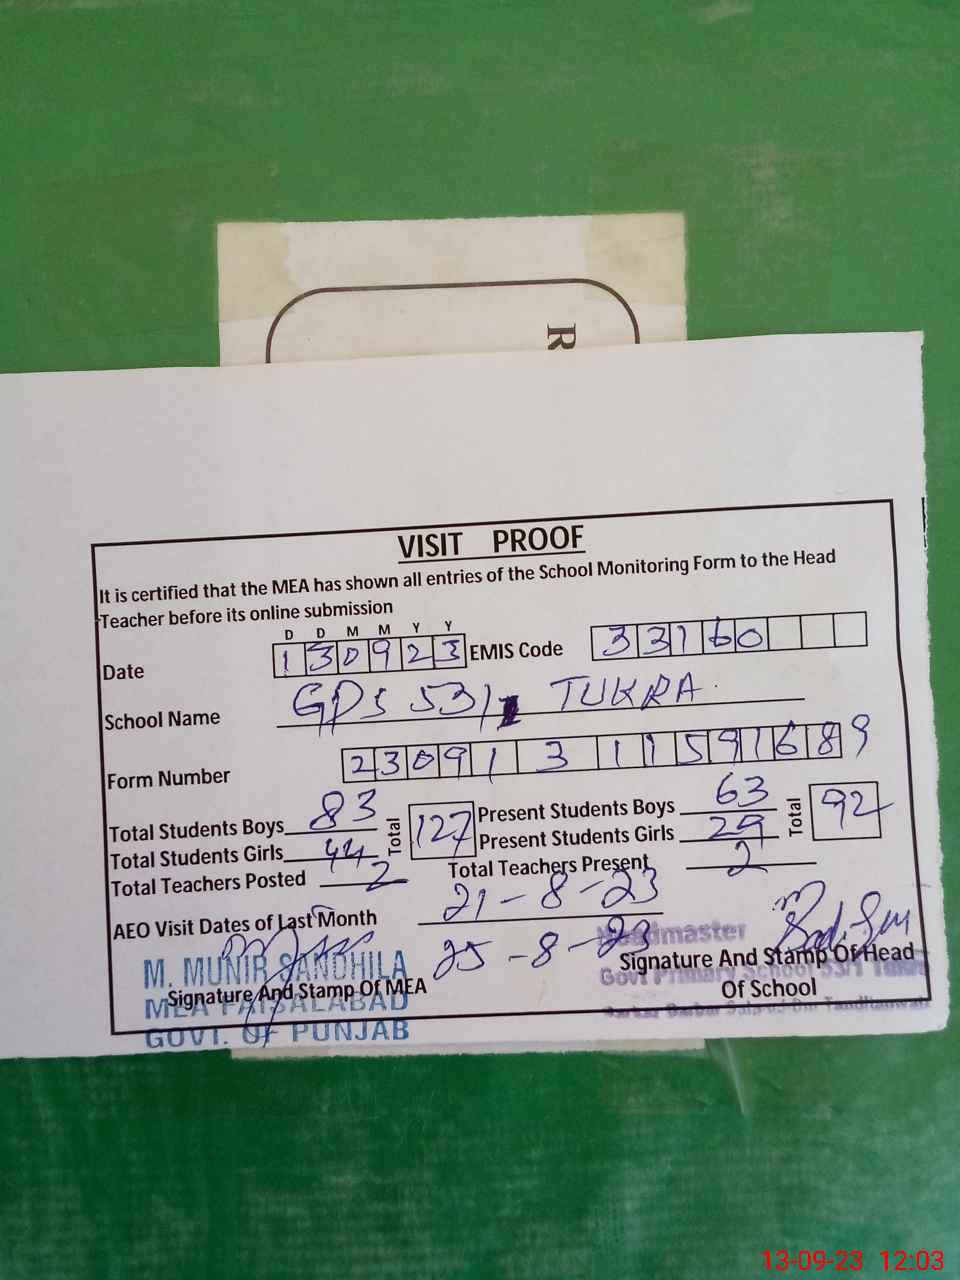 R
VISIT PROOF
It is certified that the MEA has shown all entries of the School Monitoring Form to the Head
Teacher before its online submission
D D M M Y Y
Date 130923 EMIS Code 33160
School Name GPS 531 TUKRA
Form Number 2309131159168 9
Total Students Boys 83 Total 127 Present Students Boys 63 Total 92
Total Students Girls 44 Present Students Girls 29
Total Teachers Posted 2 Total Teachers Present 2
AEO Visit Dates of Last Month 21-8-23
25-8-23
Headmaster
Govt Primary School
M. MUNIR SANDHILA
MEA FAISALABAD
GOVT. OF PUNJAB
Signature And Stamp Of MEA
Signature And Stamp Of Head
Of School
13-09-23 12:03